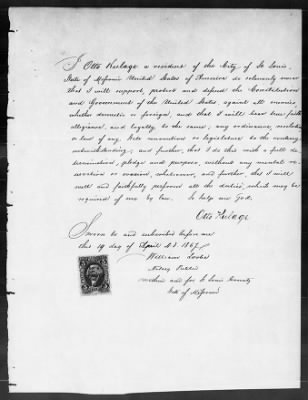 I Otto Kulage a resident of the City of St Louis,
State of Missouri United States of America do solemnly swear
that I will support, protect and defend the Constitution
and Government of the United States, against all enemies
whether domestic or foreign, and that I will bear true faith
allegiance, and loyalty to the same, any ordinance, resolution
or law of any State convention or legislature to the contrary
notwithstanding; and further, that I do this with a full de
termination, pledge and purpose, without any mental re
servation or evasion, whatsoever, and further, that I will
well and faithfully perform all the duties, which may be
required of me by law. So help me God.
Otto Kulage
Sworn to and subscribed before me
this 19 day of April A.D. 1867
William
Notary Public
within and for St Louis County
State of Missouri